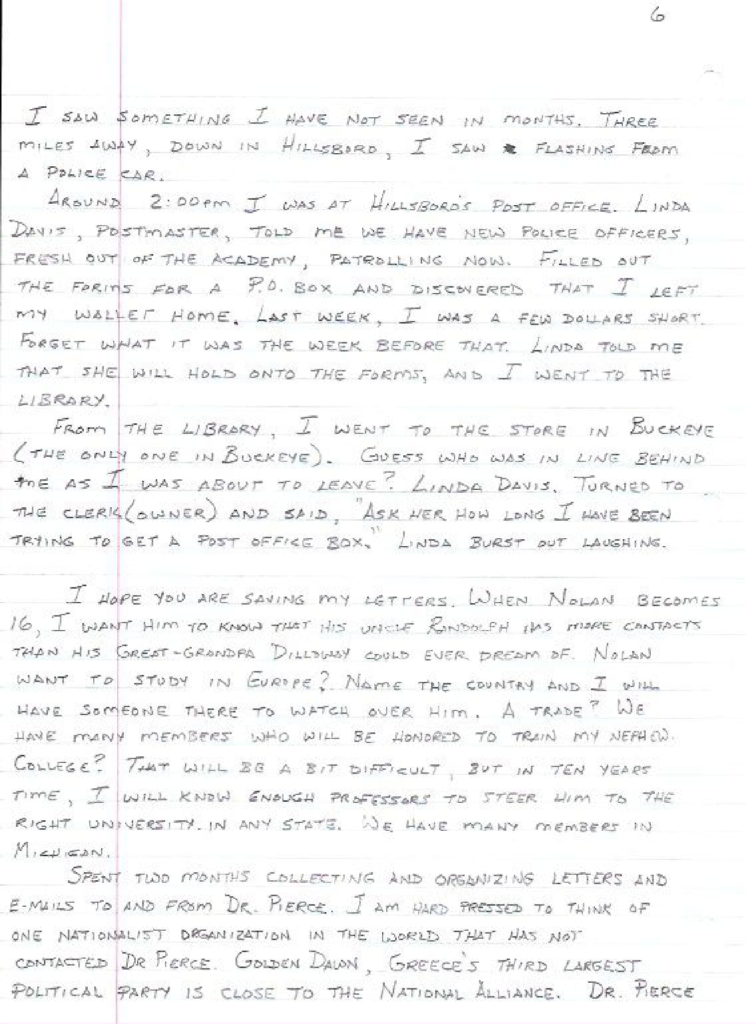 6
I SAW SOMETHING I HAVE NOT SEEN IN MONTHS. THREE
MILES AWAY, DOWN IN HILLSBORO, I SAW FLASHING FROM
A POLICE CAR.
AROUND 2:00PM I WAS AT HILLSBORO'S POST OFFICE. LINDA
DAVIS, POSTMASTER, TOLD ME WE HAVE NEW POLICE OFFICERS,
FRESH OUT OF THE ACADEMY, PATROLLING NOW. FILLED OUT
THE FORMS FOR A P.O. BOX AND DISCOVERED THAT I LEFT
MY WALLET HOME. LAST WEEK, I WAS A FEW DOLLARS SHORT.
FORGET WHAT IT WAS THE WEEK BEFORE THAT. LINDA TOLD ME
THAT SHE WILL HOLD ONTO THE FORMS, AND I WENT TO THE
LIBRARY.
FROM THE LIBRARY, I WENT TO THE STORE IN BUCKEYE
(THE ONLY ONE IN BUCKEYE). GUESS WHO WAS IN LINE BEHIND
ME AS I WAS ABOUT TO LEAVE? LINDA DAVIS. TURNED TO
THE CLERK (OWNER) AND SAID, "ASK HER HOW LONG I HAVE BEEN
TRYING TO GET A POST OFFICE BOX." LINDA BURST OUT LAUGHING.
I HOPE YOU ARE SAVING MY LETTERS. WHEN NOLAN BECOMES
16, I WANT HIM TO KNOW THAT HIS UNCLE RANDOLPH HAS MORE CONTACTS
THAN HIS GREAT-GRANDPA DILLOWAY COULD EVER DREAM OF. NOLAN
WANT TO STUDY IN EUROPE? NAME THE COUNTRY AND I WILL
HAVE SOMEONE THERE TO WATCH OVER HIM. A TRADE? WE
HAVE MANY MEMBERS WHO WILL BE HONORED TO TRAIN MY NEPHEW.
COLLEGE? THAT WILL BE A BIT DIFFICULT, BUT IN TEN YEARS
TIME, I WILL KNOW ENOUGH PROFESSORS TO STEER HIM TO THE
RIGHT UNIVERSITY. IN ANY STATE. WE HAVE MANY MEMBERS IN
MICHIGAN.
SPENT TWO MONTHS COLLECTING AND ORGANIZING LETTERS AND
E-MAILS TO AND FROM DR. PIERCE. I AM HARD PRESSED TO THINK OF
ONE NATIONALIST ORGANIZATION IN THE WORLD THAT HAS NOT
CONTACTED DR PIERCE. GOLDEN DAWN, GREECE'S THIRD LARGEST
POLITICAL PARTY IS CLOSE TO THE NATIONAL ALLIANCE. DR. PIERCE